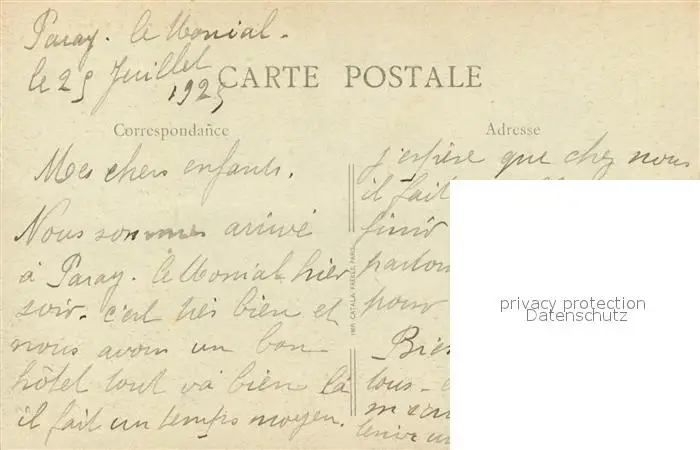 Paray. le Monial.
le 25 Juillet
1925
CARTE POSTALE
Correspondance
Adresse
Mes chers enfants.
Nous sommes arrivé
à Paray. le Monial hier
soir. c'est très bien et
nous avons un bon
hôtel tout va bien là
il fait un temps moyen.
IMP. CATALA FRÈRES, PARIS
j'espère que chez nous
il fait
finir
partou
pour
Bien
tous
privacy protection
Datenschutz